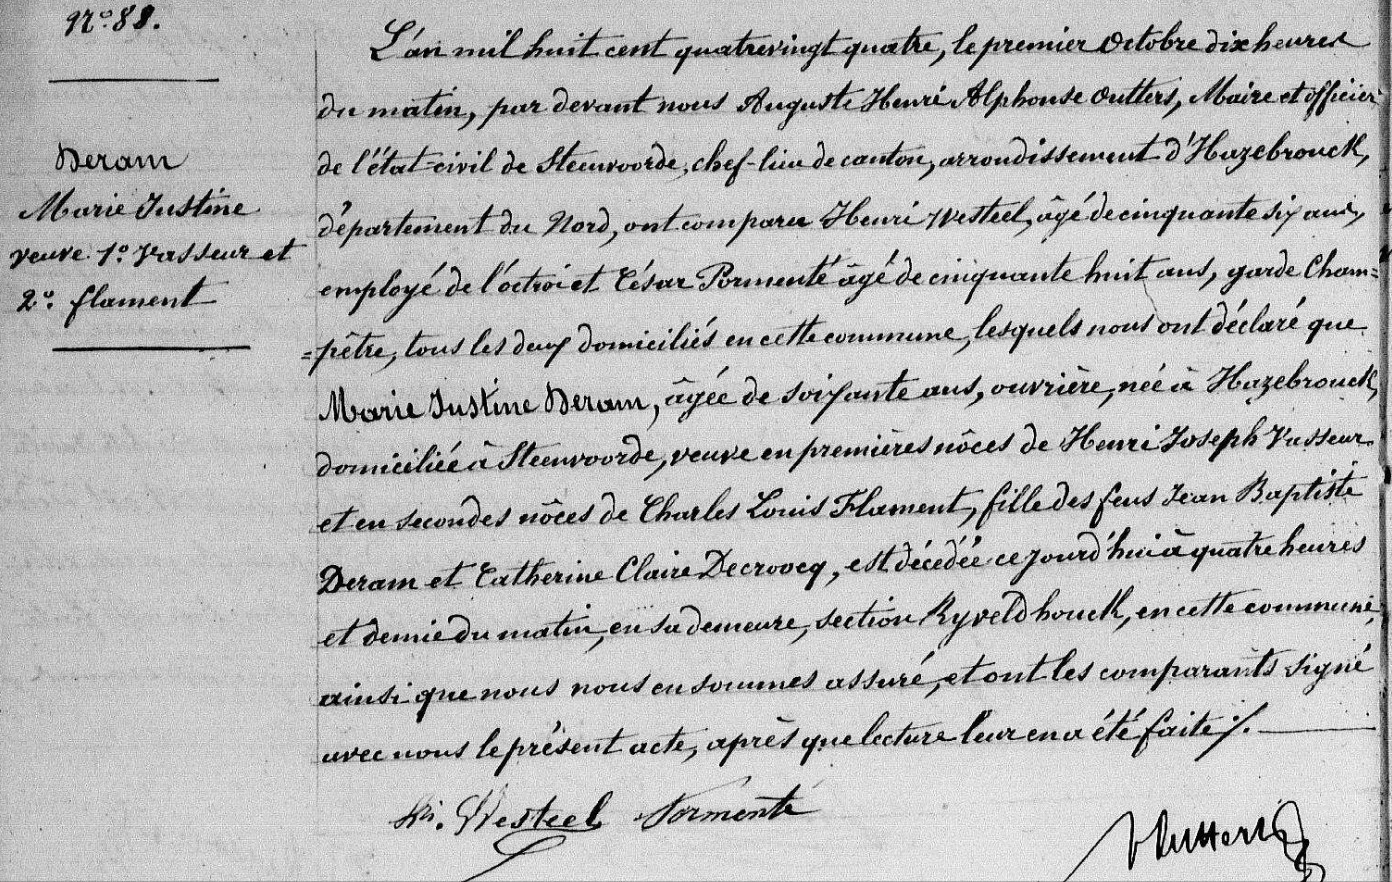 N.º 88.
Deram
Marie Justine
veuve 1.º Vasseur et
2.º flament
L'an mil huit cent quatrevingt quatre, le premier Octobre dix heures
du matin, par devant nous Auguste Henri Alphonse Outters, Maire et officier
de l'état-civil de Steenvoorde, chef-lieu de canton, arrondissement d'Hazebrouck,
département du Nord, ont comparu Henri Westeel, âgé de cinquante six ans,
employé de l'octroi et César Pormenté âgé de cinquante huit ans, garde Cham=
=pêtre, tous les deux domiciliés en cette commune, lesquels nous ont déclaré que
Marie Justine Deram, âgée de soixante ans, ouvrière, née à Hazebrouck,
domiciliée à Steenvoorde, veuve en premières nôces de Henri Joseph Vasseur
et en secondes nôces de Charles Louis Flament, fille des feus Jean Baptiste
Deram et Catherine Claire Decroocq, est décédée ce jourd'hui à quatre heures
et demie du matin, en sa demeure, section Ryveld houck, en cette commune,
ainsi que nous nous en sommes assuré, et ont les comparants signé
avec nous le présent acte, après que lecture leur en a été faite ./.
hri. Westeel Pormenté
Outters